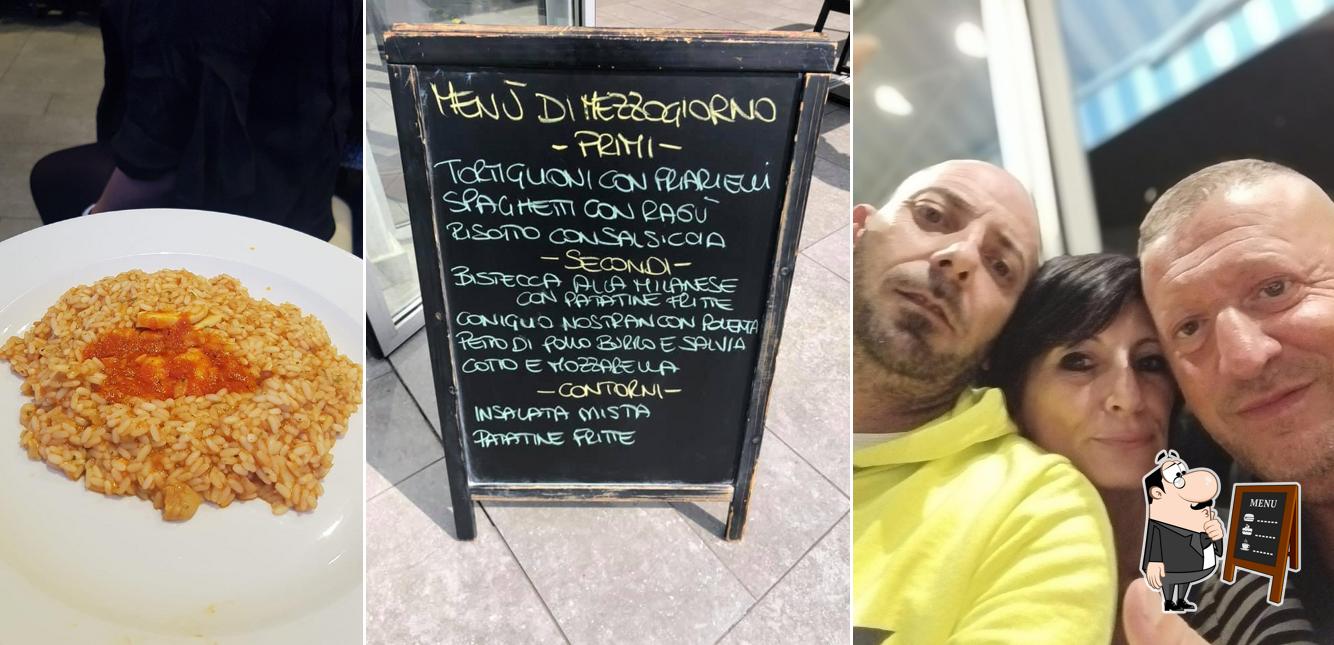 MENÙ DI MEZZOGIORNO
- PRIMI -
TORTIGLIONI CON FRIARIELLI
SPAGHETTI CON RAGÙ
RISOTTO CON SALSICCIA
- SECONDI -
BISTECCA ALLA MILANESE
CON PATATINE FRITTE
CONIGLIO NOSTRAN CON POLENTA
PETTO DI POLLO BURRO E SALVIA
COTTO E MOZZARELLA
- CONTORNI -
INSALATA MISTA
PATATINE FRITTE
MENU